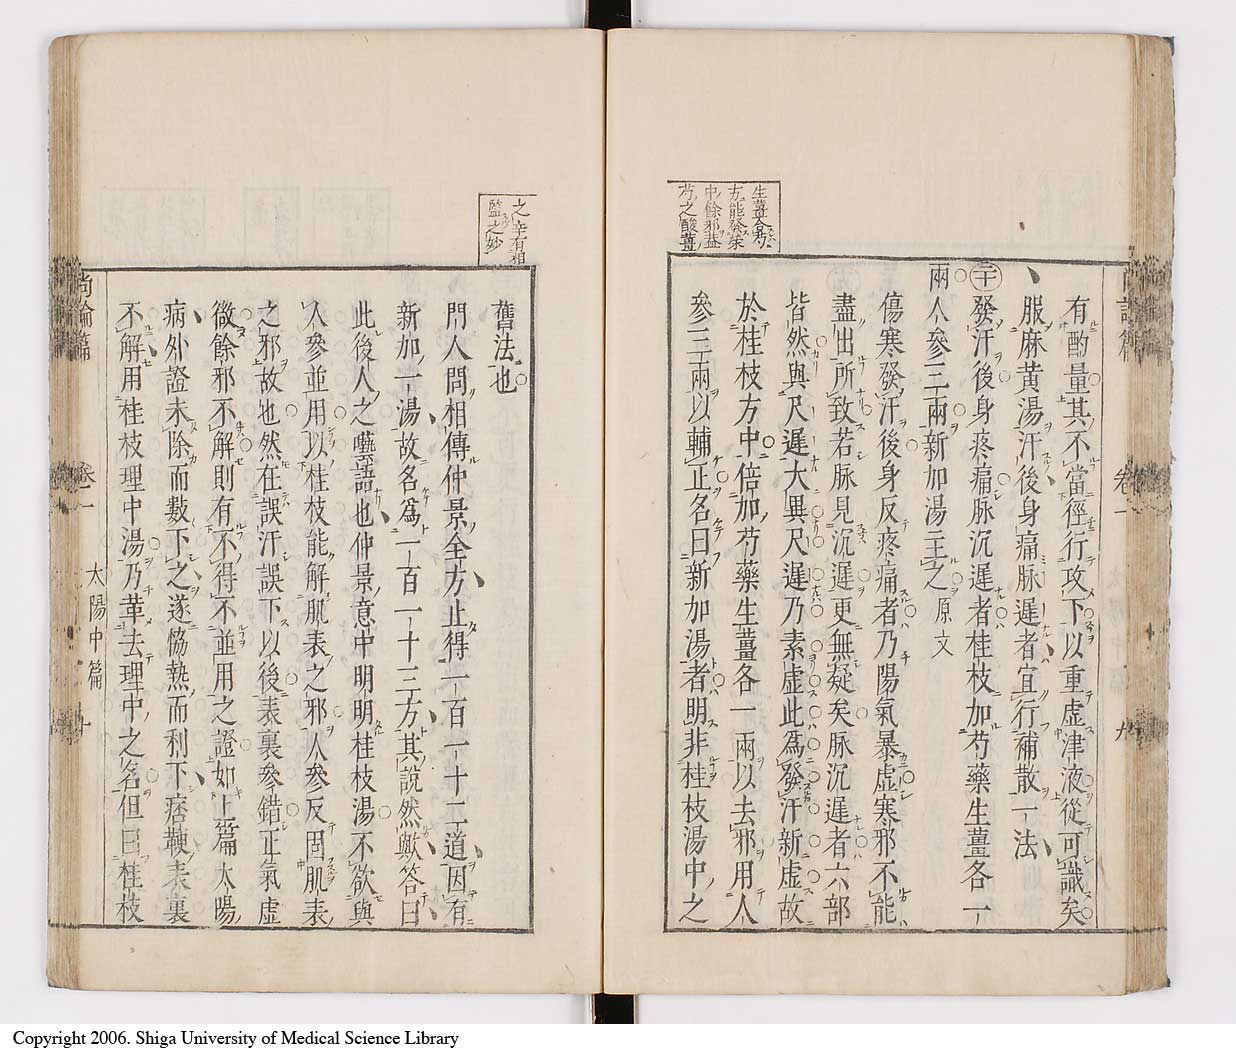 生薑合芍
方能發榮
中餘邪益
芍之酸薑
有酌量其不當徑行攻下以重虛津液從可識矣
服麻黃湯汗後身痛脉遲者宜行補散一法
二十 發汗後身疼痛脉沉遲者桂枝加芍藥生薑各一
兩人參三兩新加湯主之 原文
傷寒發汗後身反疼痛者乃陽氣暴虛寒邪不能
盡出所致若脉見沉遲更無疑矣脉沉遲者六部
皆然與尺遲大異尺遲乃素虛此爲發汗新虛故
於桂枝方中倍加芍藥生薑各一兩以去邪用人
參三兩以輔正名曰新加湯者明非桂枝湯中之
之辛有相
監之妙
舊法也
門人問相傳仲景全方止得一百一十二道因有
新加一湯故名爲一百一十三方其說然歟答曰
此後人之囈語也仲景意中明明桂枝湯不欲與
人參並用以桂枝能解肌表之邪人參反固肌表
之邪故也然在誤汗誤下以後表裏參錯正氣虛
微餘邪不解則有不得不並用之證如上篇太陽
病外證未除而數下之遂恊熱而利下痞鞕表裏
不解用桂枝理中湯乃革去理中之名但曰桂枝
尚論篇 卷一 太陽中篇 十